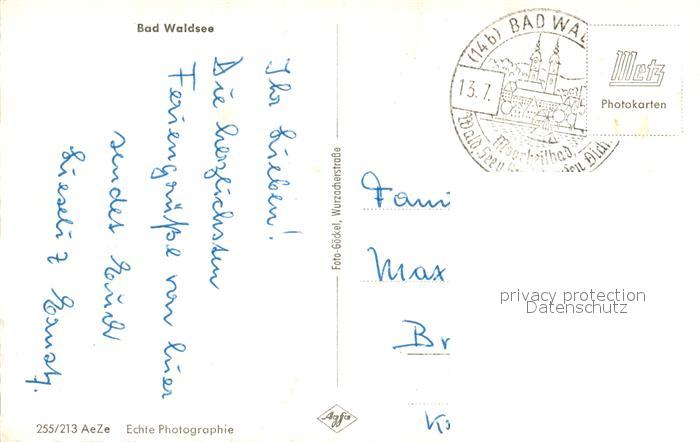 Bad Waldsee
Ihr Lieben!
Die herzlichsten
Feriengrüße von hier
sendet Euch
Ernst.
Foto-Göckel, Wurzacherstraße
255/213 AeZe Echte Photographie
Agfa
(14b) BAD WAL
13.7.
Moorheilbad
Metz
Photokarten
Fami
Max
Br
privacy protection
Datenschutz